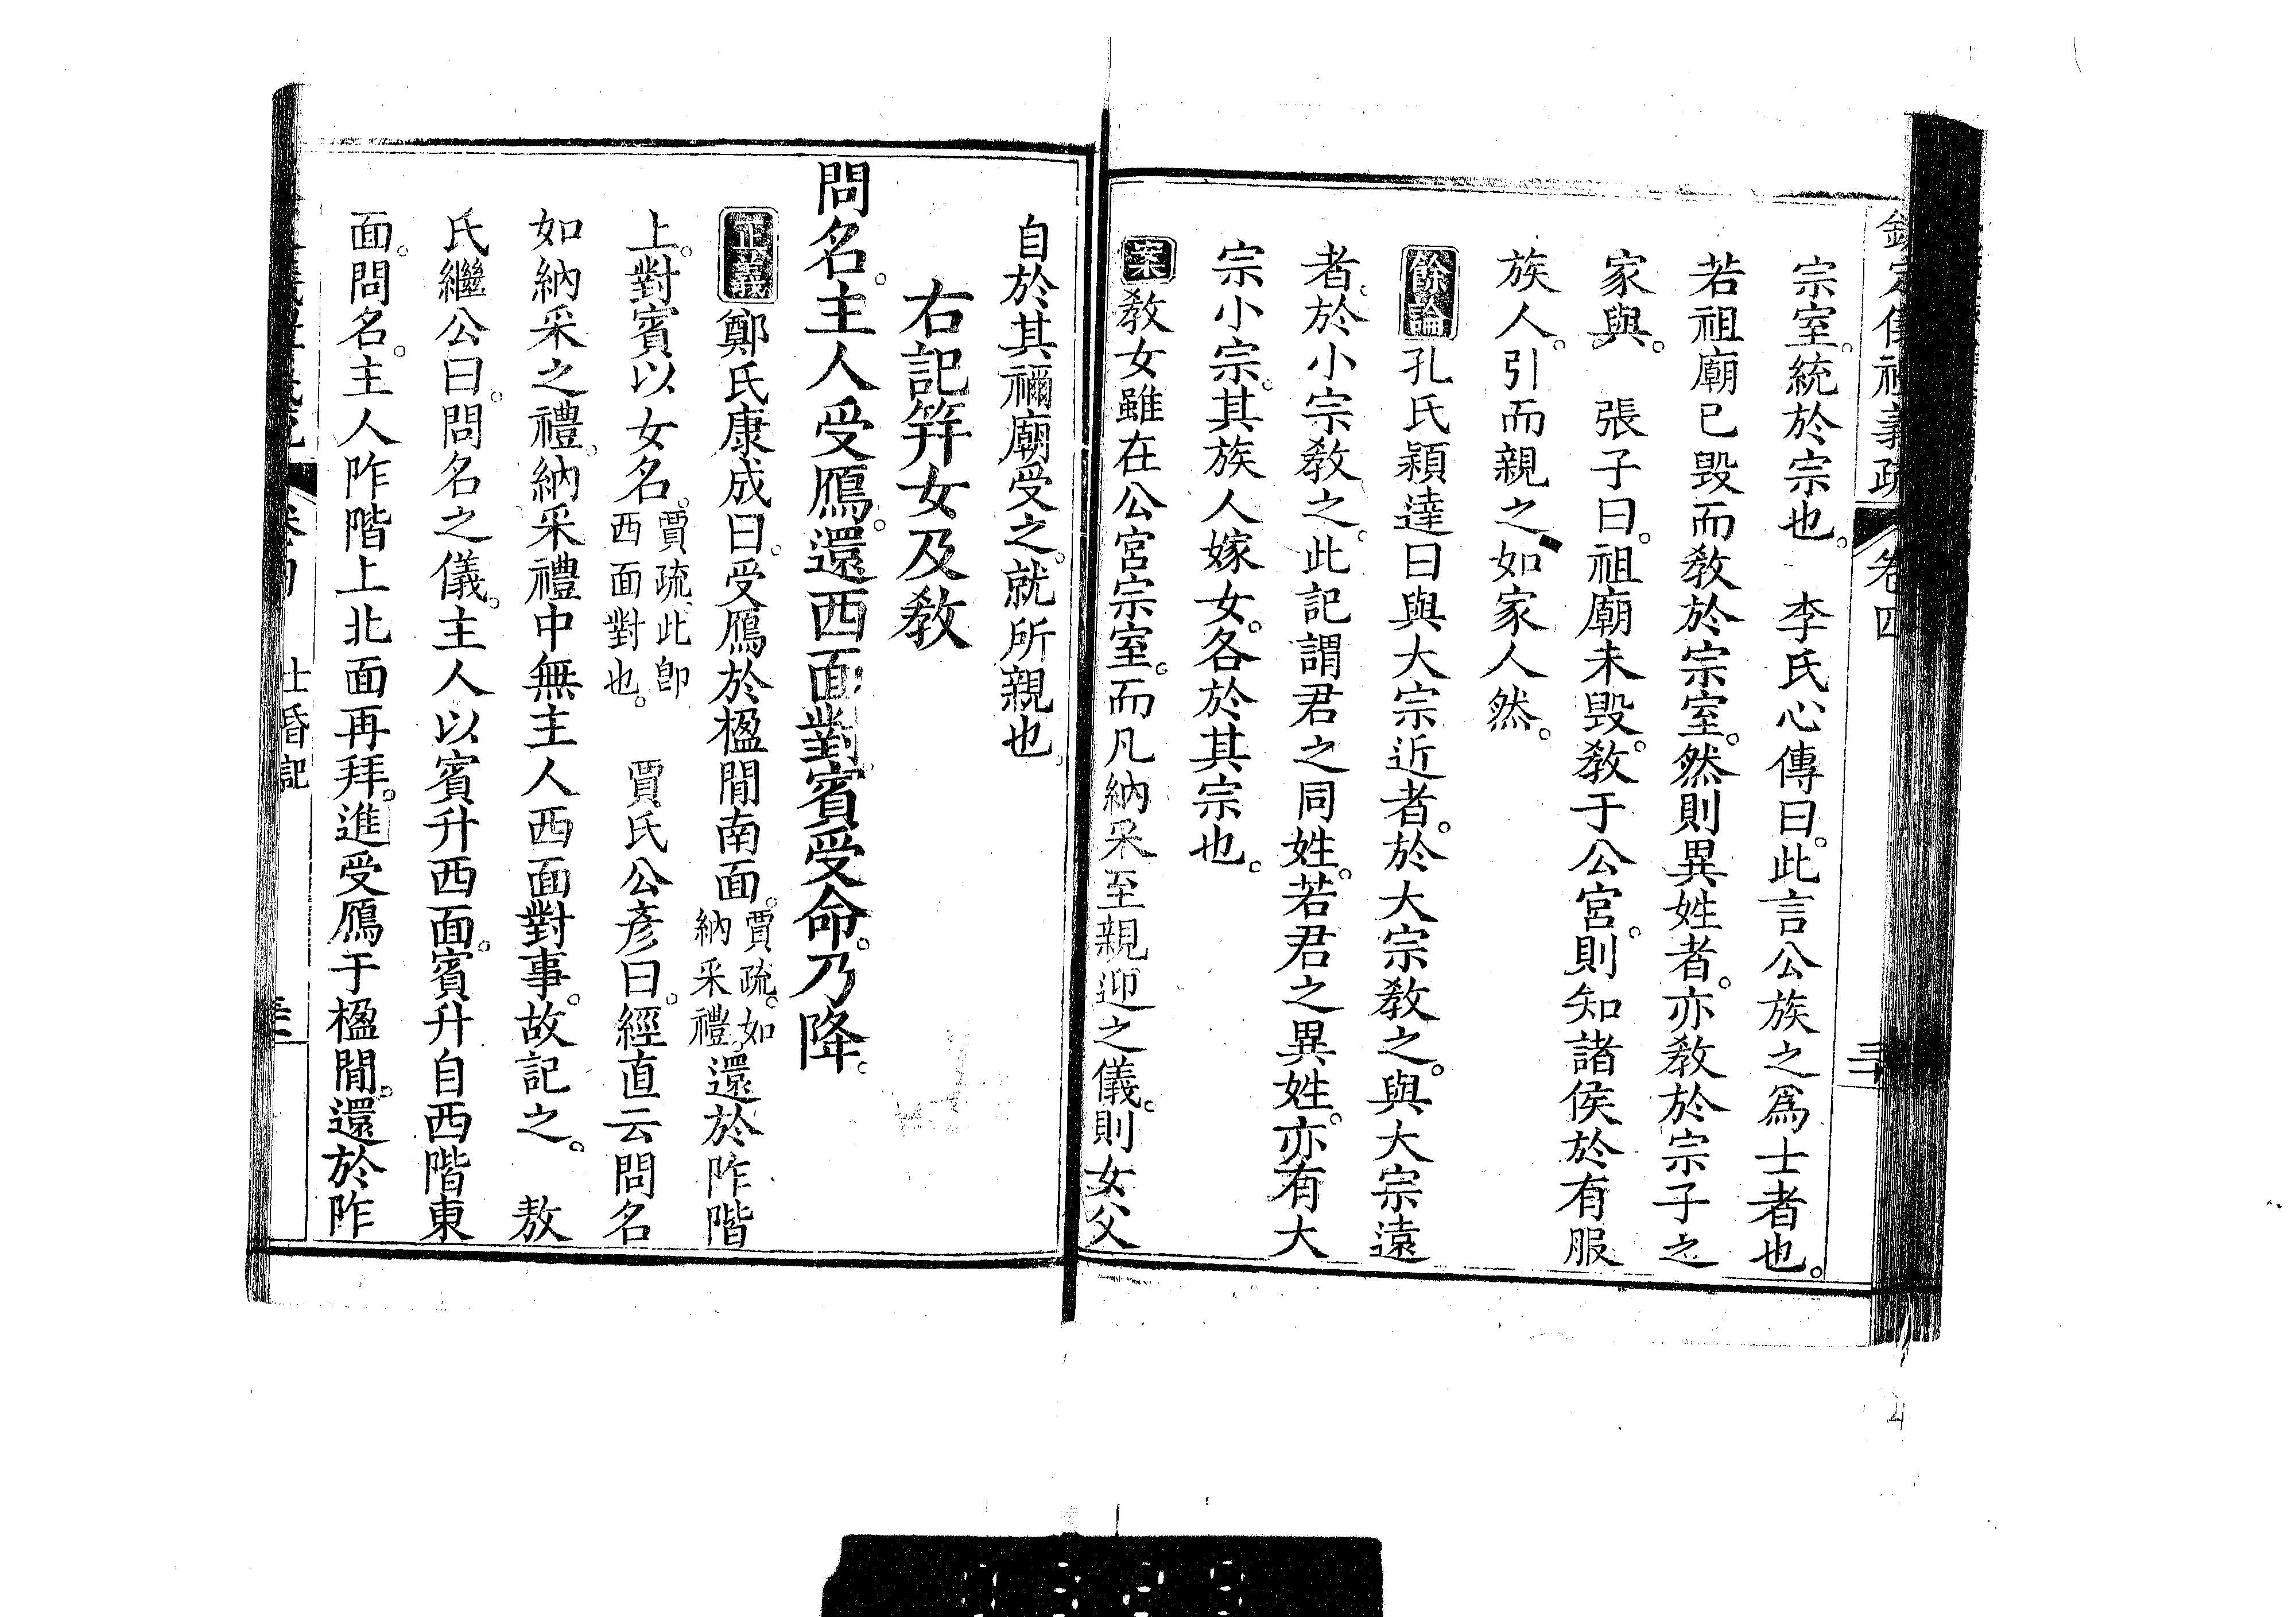 欽定儀禮義疏 卷四 三十
宗室。統於宗也。 李氏心傳曰。此言公族之爲士者也。
若祖廟已毀而敎於宗室。然則異姓者。亦敎於宗子之
家與。 張子曰。祖廟未毀。敎于公宮。則知諸侯於有服
族人。引而親之。如家人然。
餘論 孔氏穎達曰與大宗近者。於大宗敎之。與大宗遠
者。於小宗敎之。此記謂君之同姓。若君之異姓。亦有大
宗小宗。其族人嫁女。各於其宗也。
案 敎女雖在公宮宗室。而凡納采至親迎之儀。則女父
自於其禰廟受之。就所親也
右記笄女及敎
問名。主人受鴈。還西面對。賓受命。乃降。
正義 鄭氏康成曰。受鴈於楹閒南面。賈疏。如納采禮。還於阼階
上。對賓以女名。賈疏。此卽西面對也。 賈氏公彥曰。經直云問名
如納采之禮。納采禮中無主人西面對事。故記之。 敖
氏繼公曰。問名之儀。主人以賓升西面。賓升自西階東
面。問名。主人阼階上北面再拜。進受鴈于楹閒。還於阼
士昏記